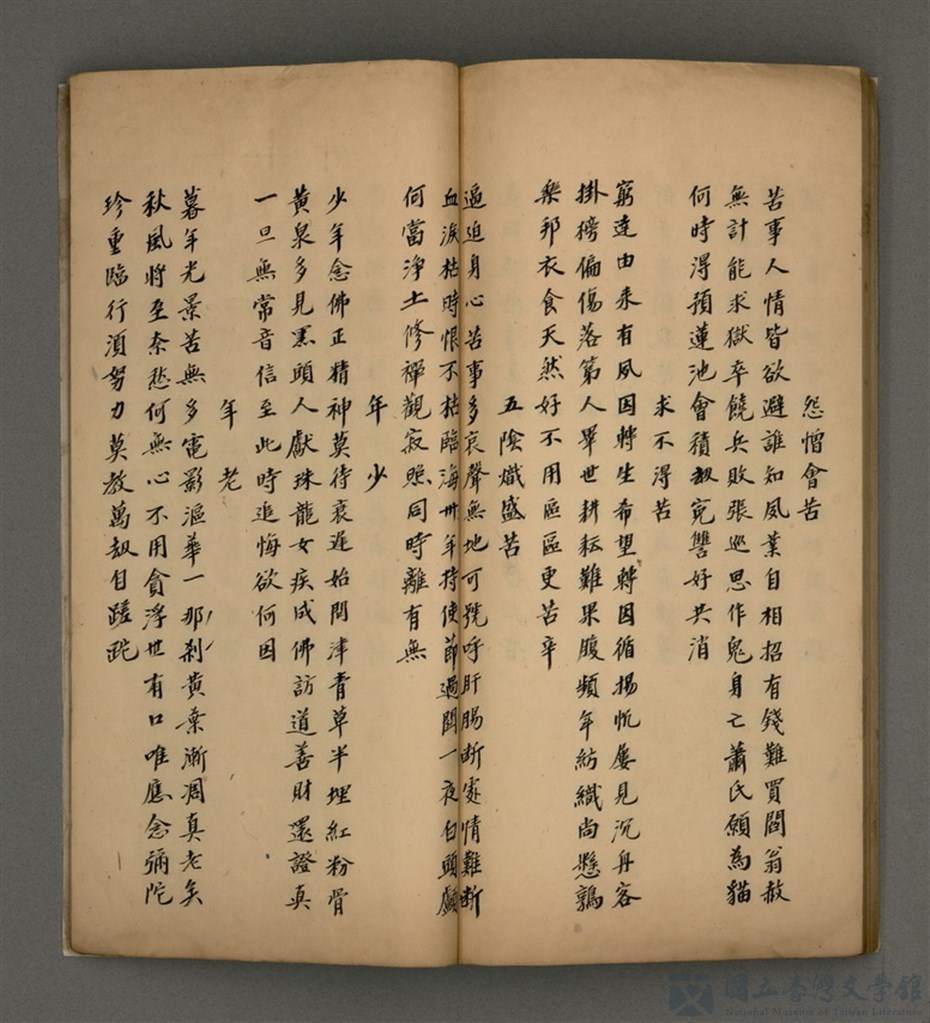 怨憎會苦
苦事人情皆欲避誰知夙業自相招有錢難買閻翁赦
無計能求獄卒饒兵敗張巡思作鬼身亡蕭氏願為貓
何時得預蓮池會積刼寃讐好共消
求不得苦
窮達由来有夙因轉生希望轉因循揚帆屡見沉舟客
掛榜偏傷落第人畢世耕耘難果腹頻年紡織尚懸鶉
樂邦衣食天然好不用區區更苦辛
五陰熾盛苦
逼迫身心苦事多哀聲無地可號呼肝腸断處情難断
血淚枯時恨不枯臨海卅年持使節過關一夜白頭顱
何當淨土修禪觀寂照同時離有無
年少
少年念佛正精神莫待衰遲始問津青草半埋紅粉骨
黃泉多見黑頭人獻珠龍女疾成佛訪道善財還證真
一旦無常音信至此時追悔欲何因
年老
暮年光景苦無多電影漚華一那剎黃葉漸凋真老矣
秋風將至奈愁何無心不用貪浮世有口唯應念彌陀
珍重臨行須努力莫教萬刼自蹉跎
國立臺灣文學館
National Museum of Taiwan Literature